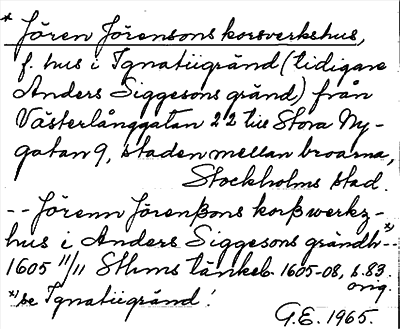 * Jören Jörensons korsverkshus,
f. hus i Ignatiigränd (tidigare
Anders Siggesons gränd) från
Västerlånggatan 22 till Stora Ny-
gatan 9, staden mellan broarna,
Stockholms stad.
-- Jörenn Jörenßons korßwerkz-
hus i Anders Siggesons grändh *) --
1605 11/11 Sthms tänkeb. 1605-08, s. 83.
orig.
*) se Ignatiigränd!
G.E. 1965.